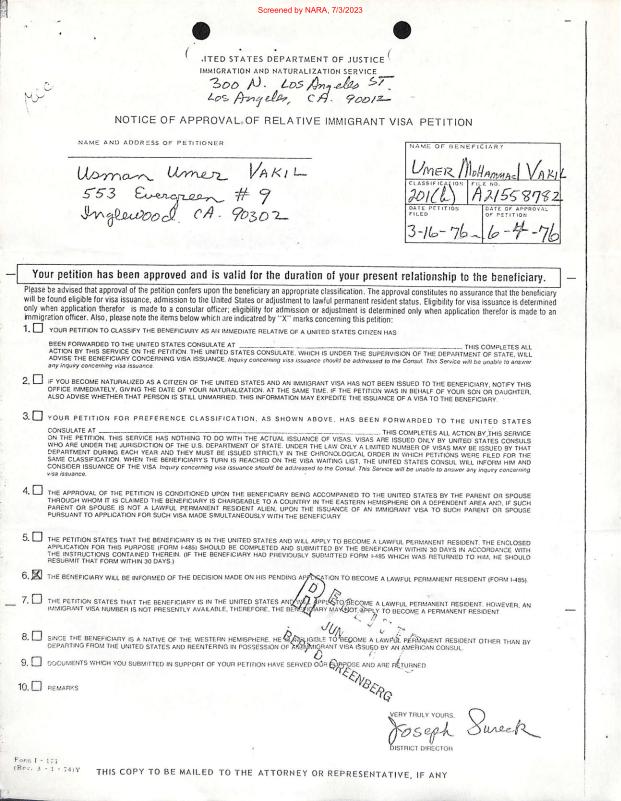 Screened by NARA, 7/3/2023
.ITED STATES DEPARTMENT OF JUSTICE
IMMIGRATION AND NATURALIZATION SERVICE
300 N. Los Angeles ST.
Los Angeles, CA. 90012
NOTICE OF APPROVAL OF RELATIVE IMMIGRANT VISA PETITION
NAME AND ADDRESS OF PETITIONER
Usman Umer VAKIL
553 Evergreen # 9
Inglewood. CA. 90302
NAME OF BENEFICIARY
UMER MOHAMMAD VAKIL
CLASSIFICATION
FILE NO.
201(b)
A21558782
DATE PETITION FILED
DATE OF APPROVAL OF PETITION
3-16-76
6-4-76
Your petition has been approved and is valid for the duration of your present relationship to the beneficiary.
Please be advised that approval of the petition confers upon the beneficiary an appropriate classification. The approval constitutes no assurance that the beneficiary
will be found eligible for visa issuance, admission to the United States or adjustment to lawful permanent resident status. Eligibility for visa issuance is determined
only when application therefor is made to a consular officer; eligibility for admission or adjustment is determined only when application therefor is made to an
immigration officer. Also, please note the items below which are indicatred by "X" marks concerning this petition:
1. YOUR PETITION TO CLASSIFY THE BENEFICIARY AS AN IMMEDIATE RELATIVE OF A UNITED STATES CITIZEN HAS
BEEN FORWARDED TO THE UNITED STATES CONSULATE AT THIS COMPLETES ALL
ACTION BY THIS SERVICE ON THE PETITION. THE UNITED STATES CONSULATE, WHICH IS UNDER THE SUPERVISION OF THE DEPARTMENT OF STATE, WILL
ADVISE THE BENEFICIARY CONCERNING VISA ISSUANCE. Inquiry concerning visa issuance should be addressed to the Consul. This Service will be unable to answer
any inquiry concerning visa issuance.
2. IF YOU BECOME NATURALIZED AS A CITIZEN OF THE UNITED STATES AND AN IMMIGRANT VISA HAS NOT BEEN ISSUED TO THE BENEFICIARY, NOTIFY THIS
OFFICE IMMEDIATELY, GIVING THE DATE OF YOUR NATURALIZATION. AT THE SAME TIME, IF THE PETITION WAS IN BEHALF OF YOUR SON OR DAUGHTER,
ALSO ADVISE WHETHER THAT PERSON IS STILL UNMARRIED. THIS INFORMATION MAY EXPEDITE THE ISSUANCE OF A VISA TO THE BENEFICIARY.
3. YOUR PETITION FOR PREFERENCE CLASSIFICATION, AS SHOWN ABOVE, HAS BEEN FORWARDED TO THE UNITED STATES
CONSULATE AT THIS COMPLETES ALL ACTION BY THIS SERVICE
ON THE PETITION. THIS SERVICE HAS NOTHING TO DO WITH THE ACTUAL ISSUANCE OF VISAS. VISAS ARE ISSUED ONLY BY UNITED STATES CONSULS
WHO ARE UNDER THE JURISDICTION OF THE U.S. DEPARTMENT OF STATE. UNDER THE LAW ONLY A LIMITED NUMBER OF VISAS MAY BE ISSUED BY THAT
DEPARTMENT DURING EACH YEAR AND THEY MUST BE ISSUED STRICTLY IN THE CHRONOLOGICAL ORDER IN WHICH PETITIONS WERE FILED FOR THE
SAME CLASSIFICATION. WHEN THE BENEFICIARY'S TURN IS REACHED ON THE VISA WAITING LIST, THE UNITED STATES CONSUL WILL INFORM HIM AND
CONSIDER ISSUANCE OF THE VISA Inquiry concerning visa issuance should be addressed to the Consul. This Service will be unable to answer any inquiry concerning
visa issuance.
4. THE APPROVAL OF THE PETITION IS CONDITIONED UPON THE BENEFICIARY BEING ACCOMPANIED TO THE UNITED STATES BY THE PARENT OR SPOUSE
THROUGH WHOM IT IS CLAIMED THE BENEFICIARY IS CHARGEABLE TO A COUNTRY IN THE EASTERN HEMISPHERE OR A DEPENDENT AREA AND, IF SUCH
PARENT OR SPOUSE IS NOT A LAWFUL PERMANENT RESIDENT ALIEN, UPON THE ISSUANCE OF AN IMMIGRANT VISA TO SUCH PARENT OR SPOUSE
PURSUANT TO APPLICATION FOR SUCH VISA MADE SIMULTANEOUSLY WITH THE BENEFICIARY
5. THE PETITION STATES THAT THE BENEFICIARY IS IN THE UNITED STATES AND WILL APPLY TO BECOME A LAWFUL PERMANENT RESIDENT. THE ENCLOSED
APPLICATION FOR THIS PURPOSE (FORM I-485) SHOULD BE COMPLETED AND SUBMITTED BY THE BENEFICIARY WITHIN 30 DAYS IN ACCORDANCE WITH
THE INSTRUCTIONS CONTAINED THEREIN. (IF THE BENEFICIARY HAD PREVIOUSLY SUBMITTED FORM I-485 WHICH WAS RETURNED TO HIM, HE SHOULD
RESUBMIT THAT FORM WITHIN 30 DAYS.)
6. X THE BENEFICIARY WILL BE INFORMED OF THE DECISION MADE ON HIS PENDING APPLICATION TO BECOME A LAWFUL PERMANENT RESIDENT (FORM I-485).
7. THE PETITION STATES THAT THE BENEFICIARY IS IN THE UNITED STATES AND WILL APPLY TO BECOME A LAWFUL PERMANENT RESIDENT. HOWEVER, AN
IMMIGRANT VISA NUMBER IS NOT PRESENTLY AVAILABLE, THEREFORE, THE BENEFICIARY MAY NOT APPLY TO BECOME A PERMANENT RESIDENT
8. SINCE THE BENEFICIARY IS A NATIVE OF THE WESTERN HEMISPHERE, HE IS INELIGIBLE TO BECOME A LAWFUL PERMANENT RESIDENT OTHER THAN BY
DEPARTING FROM THE UNITED STATES AND REENTERING IN POSSESSION OF AN IMMIGRANT VISA ISSUED BY AMERICAN CONSUL.
9. DOCUMENTS WHICH YOU SUBMITTED IN SUPPORT OF YOUR PETITION HAVE SERVED OUR PURPOSE AND ARE RETURNED
10. REMARKS
JUN
GREENBERG
VERY TRULY YOURS,
Joseph Sureck
DISTRICT DIRECTOR
Form I - 171
(Rev. 3 - 1 - 74)Y
THIS COPY TO BE MAILED TO THE ATTORNEY OR REPRESENTATIVE, IF ANY